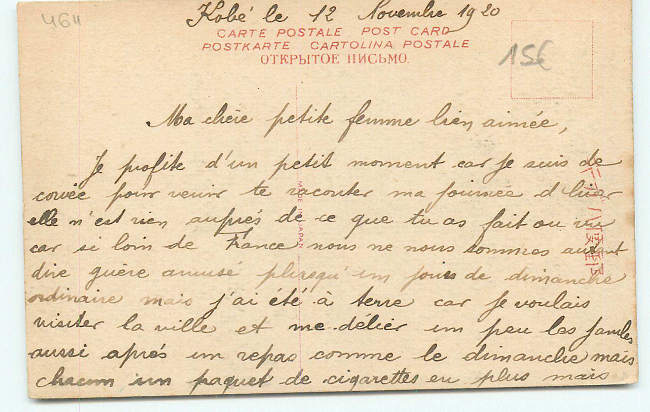 4611
Kobé le 12 Novembre 1920
CARTE POSTALE POST CARD
POSTKARTE CARTOLINA POSTALE
ОТКРЫТОЕ ПИСЬМО.
15€
Ma chère petite femme bien aimée,
Je profite d'un petit moment car je suis de
corvée pour venir te raconter ma journée d'hier
elle n'est rien auprés de ce que tu as fait ou vu
car si loin de France nous ne nous sommes autant
dire guère amusé plusqu'un jours de dimanche
ordinaire mais j'ai été à terre car je voulais
visiter la ville et me délier un peu les jambes
aussi aprés un repas comme le dimanche mais
chacun un paquet de cigarettes en plus mais